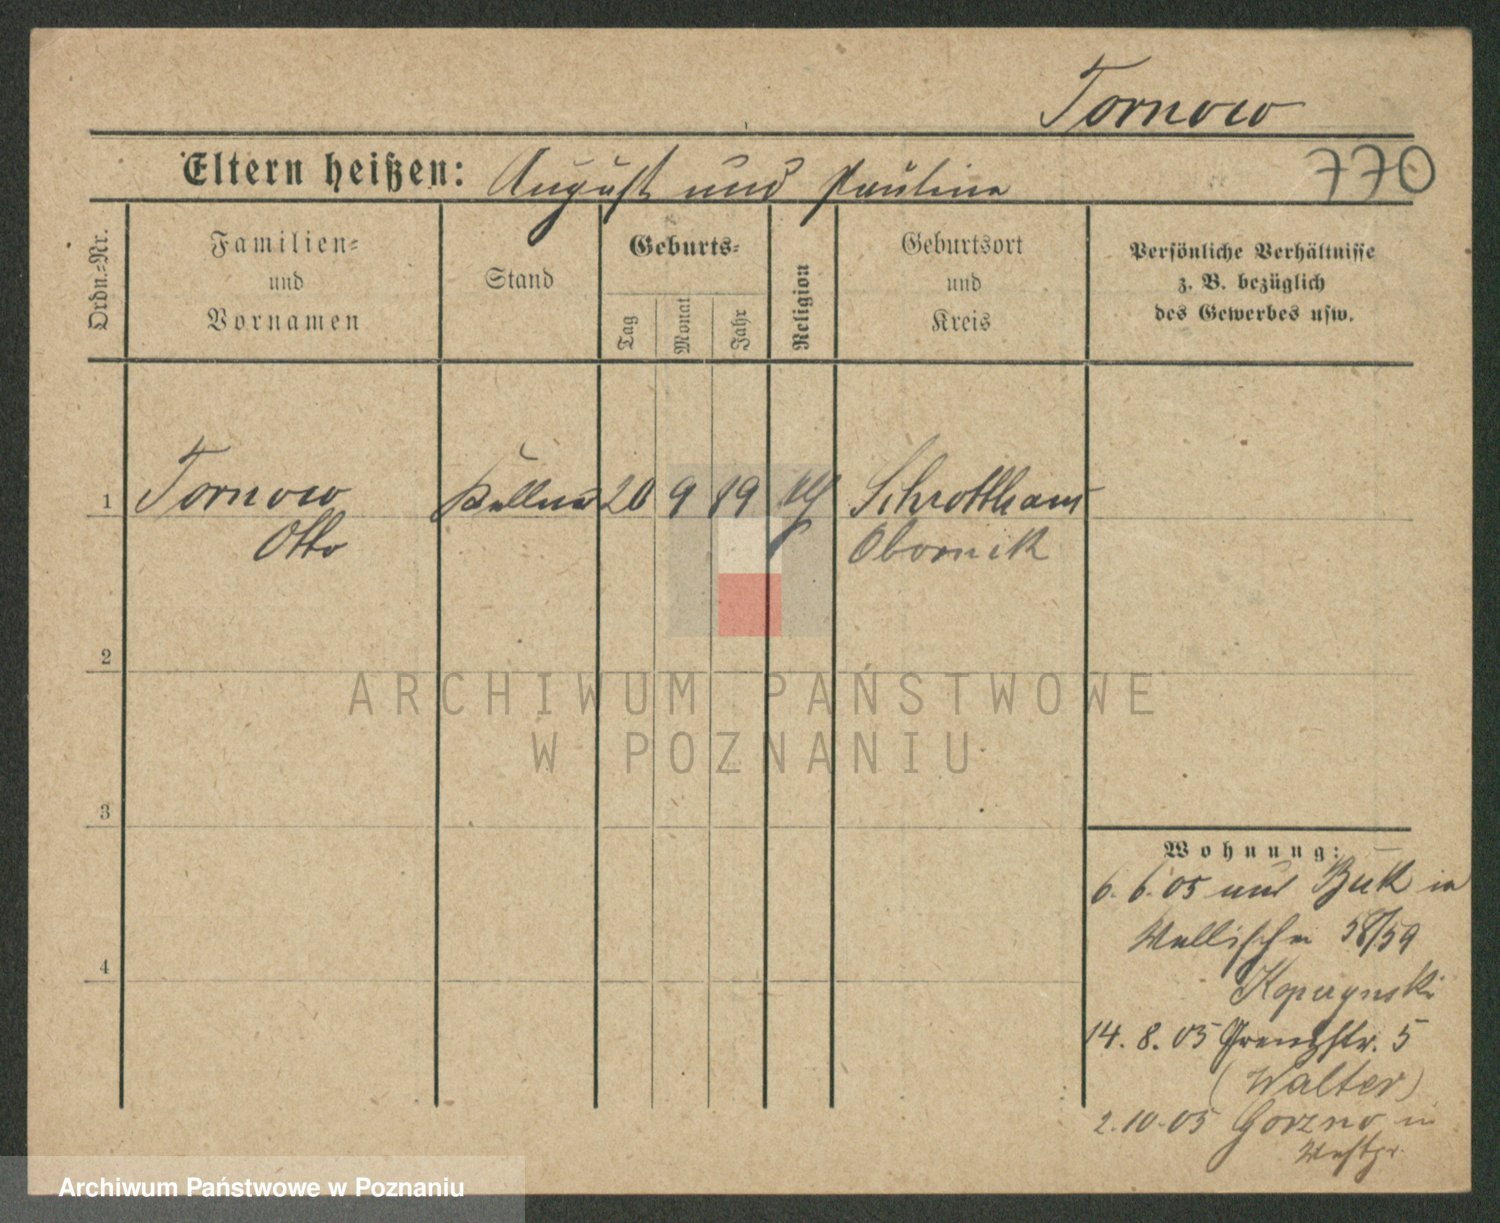 Tornow
Eltern heißen: August und Pauline
770
Ordn.=Nr.
Familien=
und
Vornamen
Stand
Geburts=
Tag
Monat
Jahr
Religion
Geburtsort
und
Kreis
Persönliche Verhältnisse
z. B. bezüglich
des Gewerbes usw.
1 Tornow Kellner 20 9 89 Schrotthaus
Otto Obornik
2
3
4
Wohnung:
6. 6. 05 aus Buk in
Wallischei 58/59
14. 8. 05 Grenzstr. 5
(Walter)
2. 10. 05 Gorzno in
Westpr.
ARCHIWUM PAŃSTWOWE
W POZNANIU
Archiwum Państwowe w Poznaniu